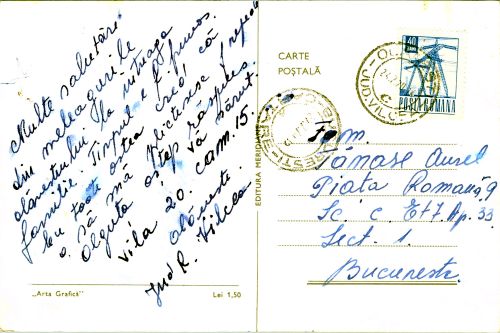 Multe salutări
din meleagurile
olăneștului la întreaga
familie. Timpul e frumos.
Cu toate astea cred că
o să mă plictisesc repede
Olguța aștept răspuns
vă sărut.
Vila 20. cam. 15.
Olănești
Jud. R. Vîlcea
„Arta Grafică”
Lei 1,50
EDITURA MERIDIANE
CARTE
POȘTALĂ
40
BANI
POSTA ROMANA
JUD. VILCEA
Fam.
Tănase Aurel
Piața Romană, 9
Sc. C Et7 Ap. 33
Sect. 1.
București